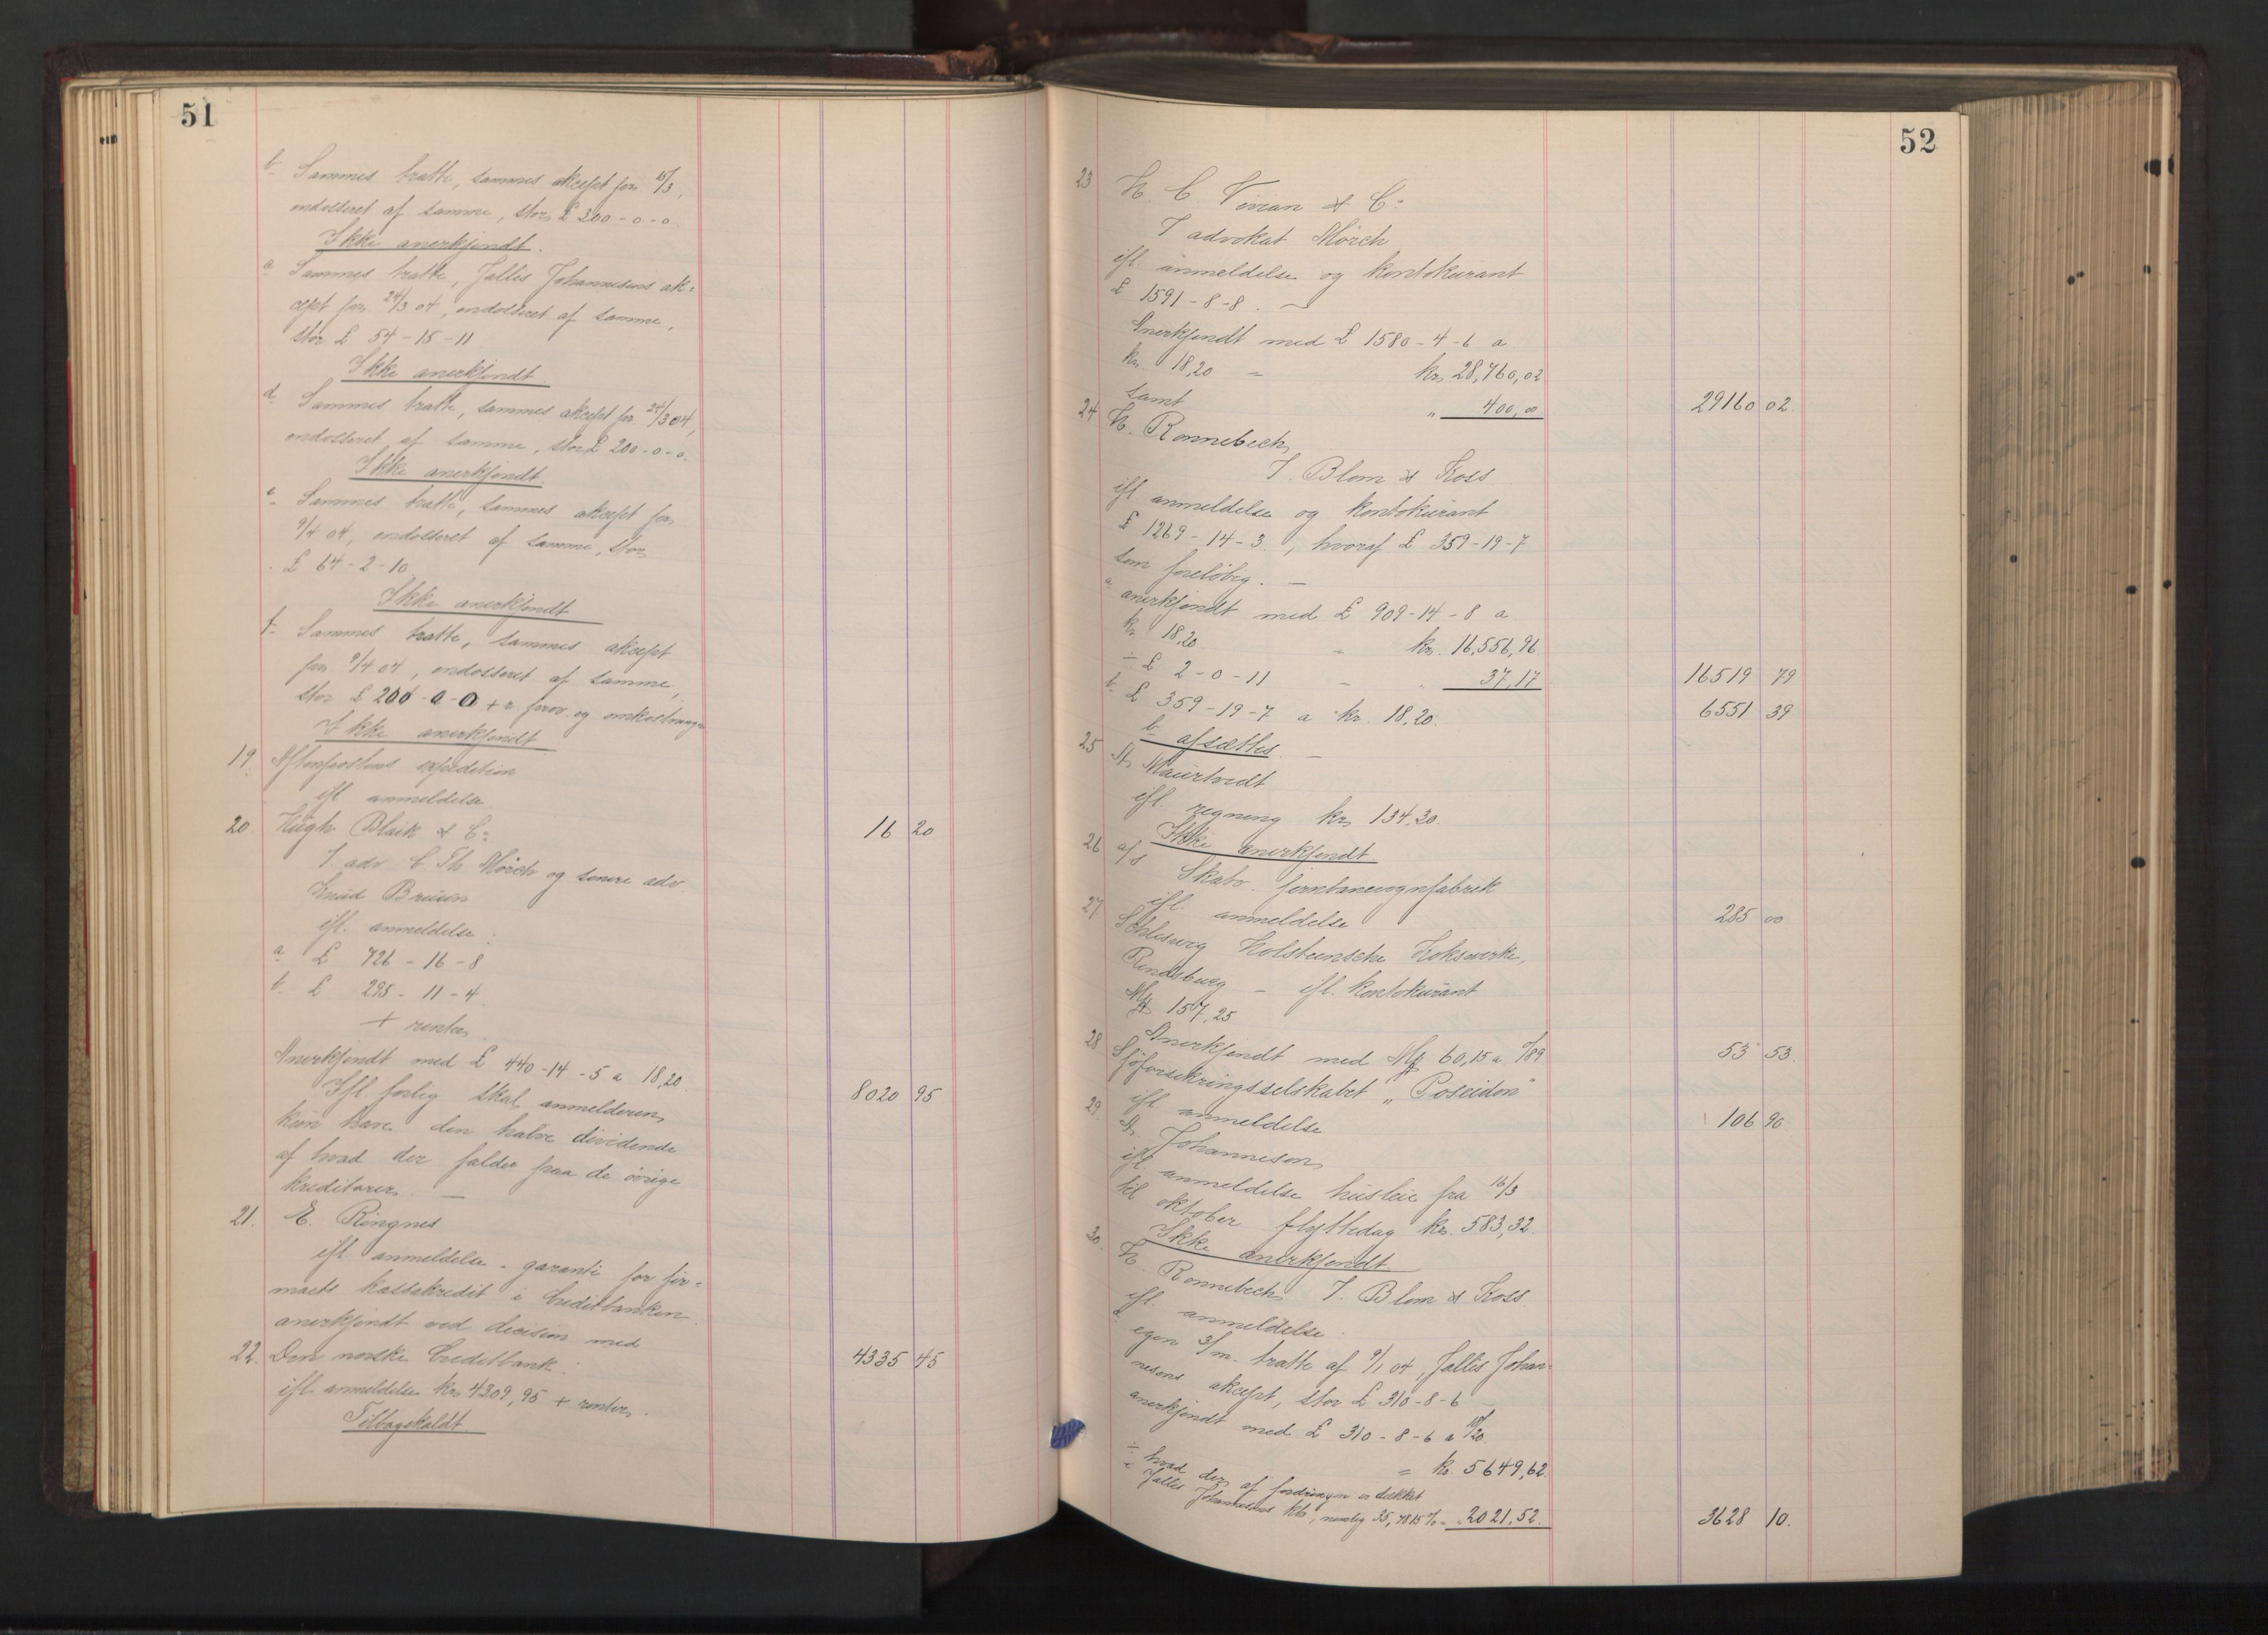 51
b. Sammes tratte, sammes akcept per 15/3,
endosseret af samme, stor £ 300-0-0.
Ikke anerkjendt.
c Sammes tratte, Jalles Johannesens ak=
cept per 24/3 04, endosseret af samme,
stor £ 54-15-11
Ikke anerkjendt
d. Sammes tratte, sammes akcept per 24/3 04,
endosseret af samme, stor £ 200-0-0.
Ikke anerkjendt.
e Sammes tratte, sammes akcept per
9/4 04, endosseret af samme, stor
£ 64-2-10
Ikke anerkjendt
f. Sammes tratte, sammes akcept
per 9/4 04, endosseret af samme,
stor £ 200-0-0 + r. prov. og omkostninger
Ikke anerkjendt
19. Aftenpostens expedition
ifl. anmeldelse 16 20
20. Hugh Blaik & Co
V. adv. C. Th. Mörch og senere adv.
Knud Bruun
ifl. anmeldelse:
a £ 726-16-8
b. £ 295-11-4
+ renter.
Anerkjendt med £ 440-14-5 a 18,20. 8020 95
Ifl. forlig skal anmelderen
kun have den halve dividende
af hvad der falder paa de övrige
kreditorer. —
21. E. Ringnes
ifl. anmeldelse - garanti for fir=
maets kassekredit i Creditbanken.
anerkjendt ved decision med 4335 45
22. Den norske Creditbank:
ifl. anmeldelse kr. 4309,95 + renter.
Tilbagekaldt.
52
23 H. C. Vivian & Co
V advokat Mörch
ifl. anmeldelse og kontokurant
£ 1591-8-8. —
Anerkjendt med £ 1580-4-6 a
kr. 18,20 = kr. 28,760,02
samt " 400,00 29160 02.
24 H. Ronnebeck
V. Blom & Koss
ifl. anmeldelse og kontokurant
£ 1269-14-3, hvoraf £ 359-19-7
som foreløbig. —
a anerkjendt med £ 909-14-8 a
kr. 18,20 = kr. 16,556,96
÷ £ 2-0-11 - 37,17 16519 79
b. £ 359-19-7 a kr. 18,20. 6551 39
b afsættes. —
25 A. Maurtvedt
ifl. regning kr. 134,30.
Ikke anerkjendt
26 a/s Skabo jernbanevognfabrik
ifl. anmeldelse 285 00
27 Schleswig Holsteinsche Kokswerke,
Rendsburg - ifl. kontokurant
Mk 157,25
Anerkjendt med Mk 60,15 a /89 53 53.
28 Sjöforsikringsselskabet "Poseidon"
ifl. anmeldelse 106 90
29. A. Johannesen
ifl. anmeldelse husleie fra 16/3
til oktober flyttedag kr. 583,32.
Ikke anerkjendt
30. H. Ronnebeck V. Blom & Koss
ifl. anmeldelse.
a. egen 3/m. tratte af 9/1 04, Jalles Johan-
nesens akcept, stor £ 310-8-6 —
anerkjendt med £ 310-8-6 a 18/20
= kr. 5649,62.
÷ hvad der af fordringen er dækket
i Jalles Johannesens kb., nemlig 35,7815% = " 2021,52. 3628 10.